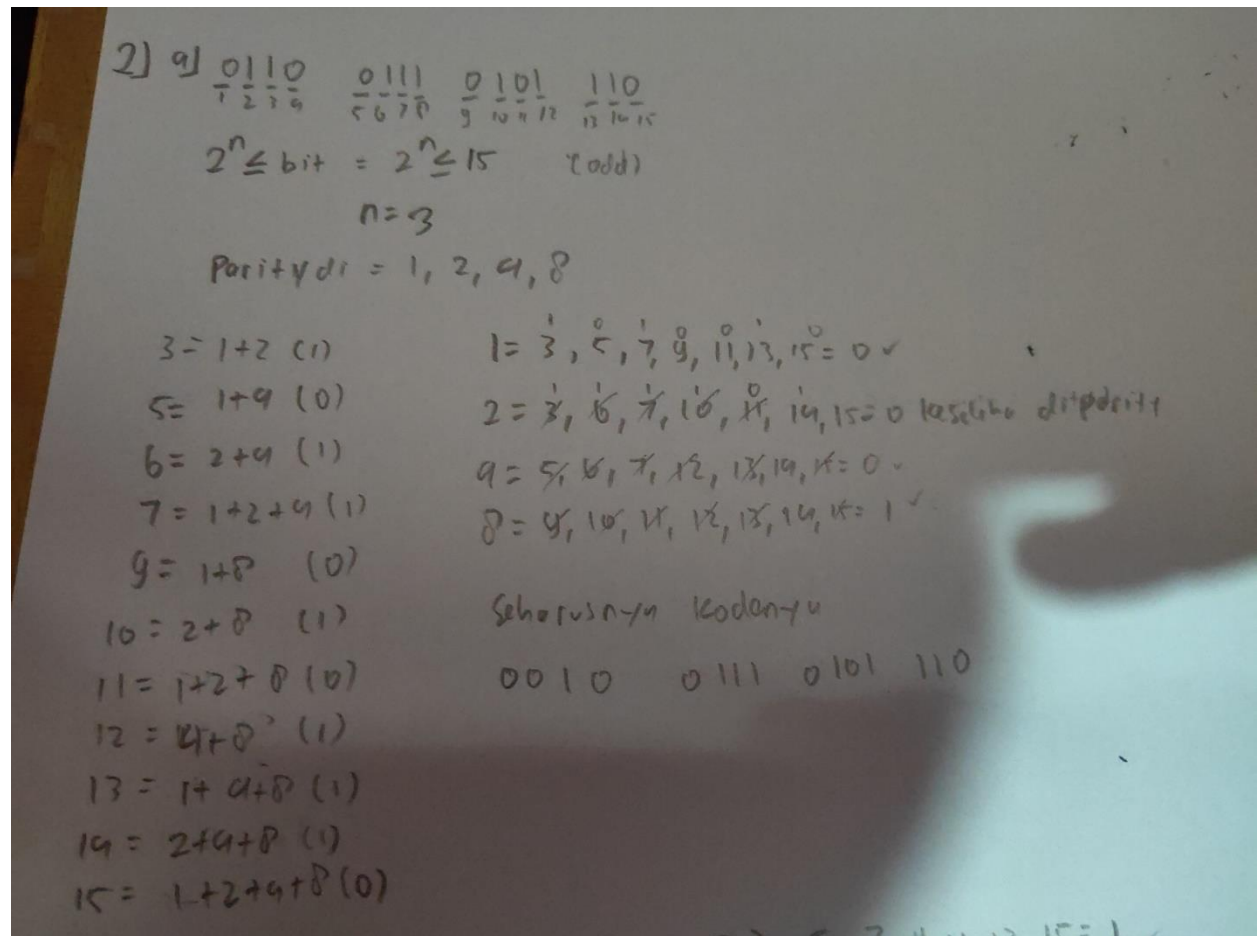 2) a) 0110 0111 0101 110
1 2 3 4 5 6 7 8 9 10 11 12 13 14 15
2ⁿ ≤ bit = 2ⁿ ≤ 15 (odd)
n = 3
Parity di = 1, 2, 4, 8
3 = 1+2 (1)
5 = 1+4 (0)
6 = 2+4 (1)
7 = 1+2+4 (1)
9 = 1+8 (0)
10 = 2+8 (1)
11 = 1+2+8 (0)
12 = 4+8 (1)
13 = 1+4+8 (1)
14 = 2+4+8 (1)
15 = 1+2+4+8 (0)
1 0 1 0 0 1 0
1 = 3, 5, 7, 9, 11, 13, 15 = 0 ✓
1 1 1 1 0 1
2 = 3, 6, 7, 10, 11, 14, 15 = 0
4 = 5, 6, 7, 12, 13, 14, 15 = 0 ✓
8 = 9, 10, 11, 12, 13, 14, 15 = 1 ✓
Seharusnya kodenya
0010 0111 0101 110